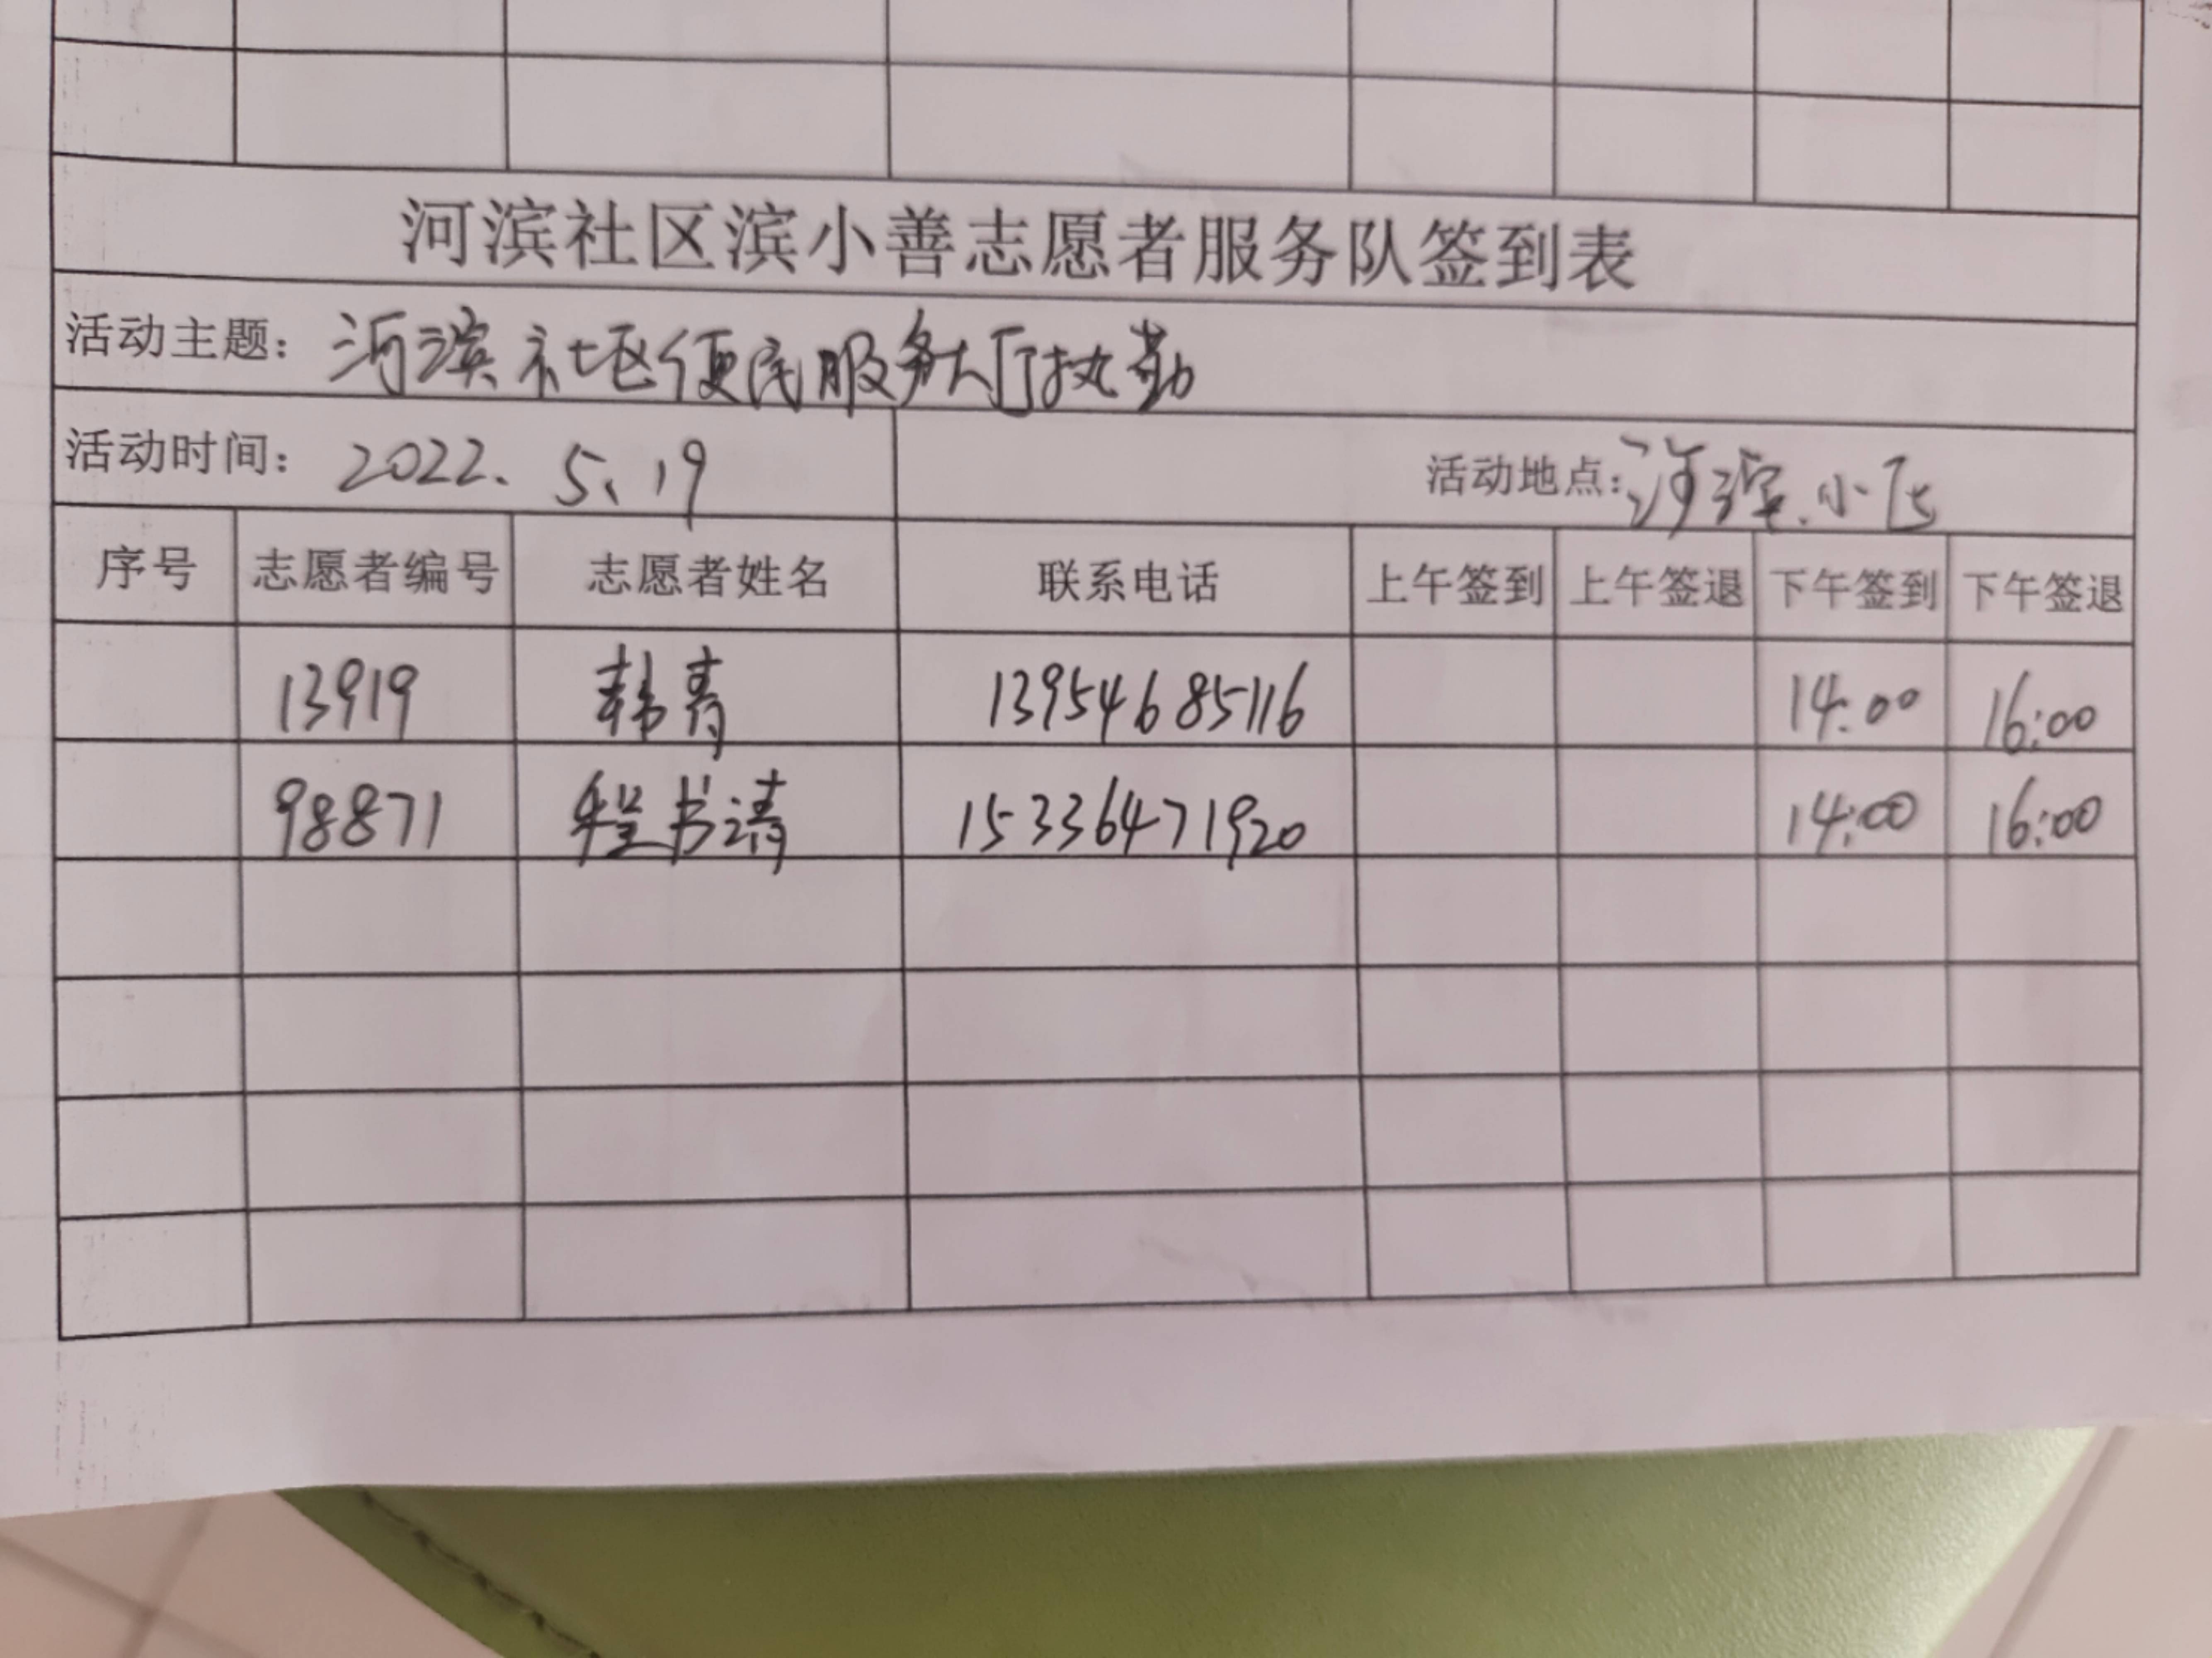 河滨社区滨小善志愿者服务队签到表
活动主题：河滨社区便民服务大厅执勤
活动时间：2022.5.19 活动地点：河滨小区
序号 志愿者编号 志愿者姓名 联系电话 上午签到 上午签退 下午签到 下午签退
13919 韩青 13954685116 14:00 16:00
98871 程书清 15336471920 14:00 16:00